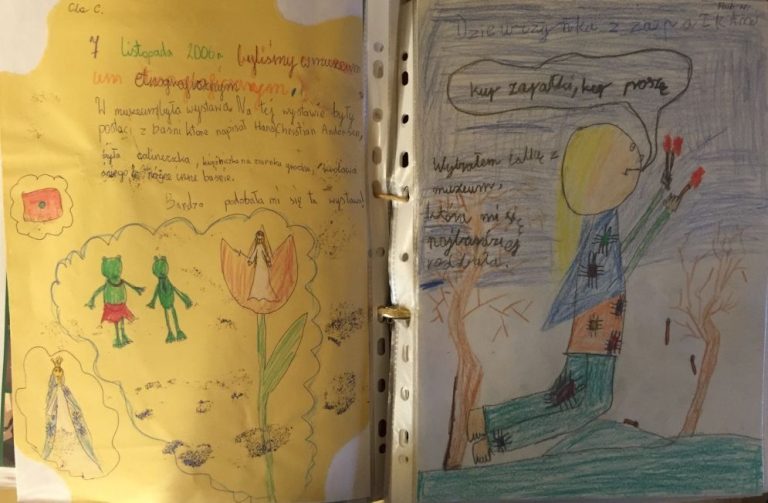 Ola C.
7 Listopada 2006r. byliśmy w muze
um etnograficznym.
W muzeum była wystawa. Na tej wystawie były
postaci z baśni które napisał Hans Christian Andersen,
była calineczka, księżniczka na ziarnku grochu, królowa
śniegu i różne inne baśnie.
Bardzo podobała mi się ta wystawa!
Dziewczynka z zapałkami
kup zapałki, kup proszę
Wybrałem lalkę z
muzeum,
która mi się
najbardziej
podobała.